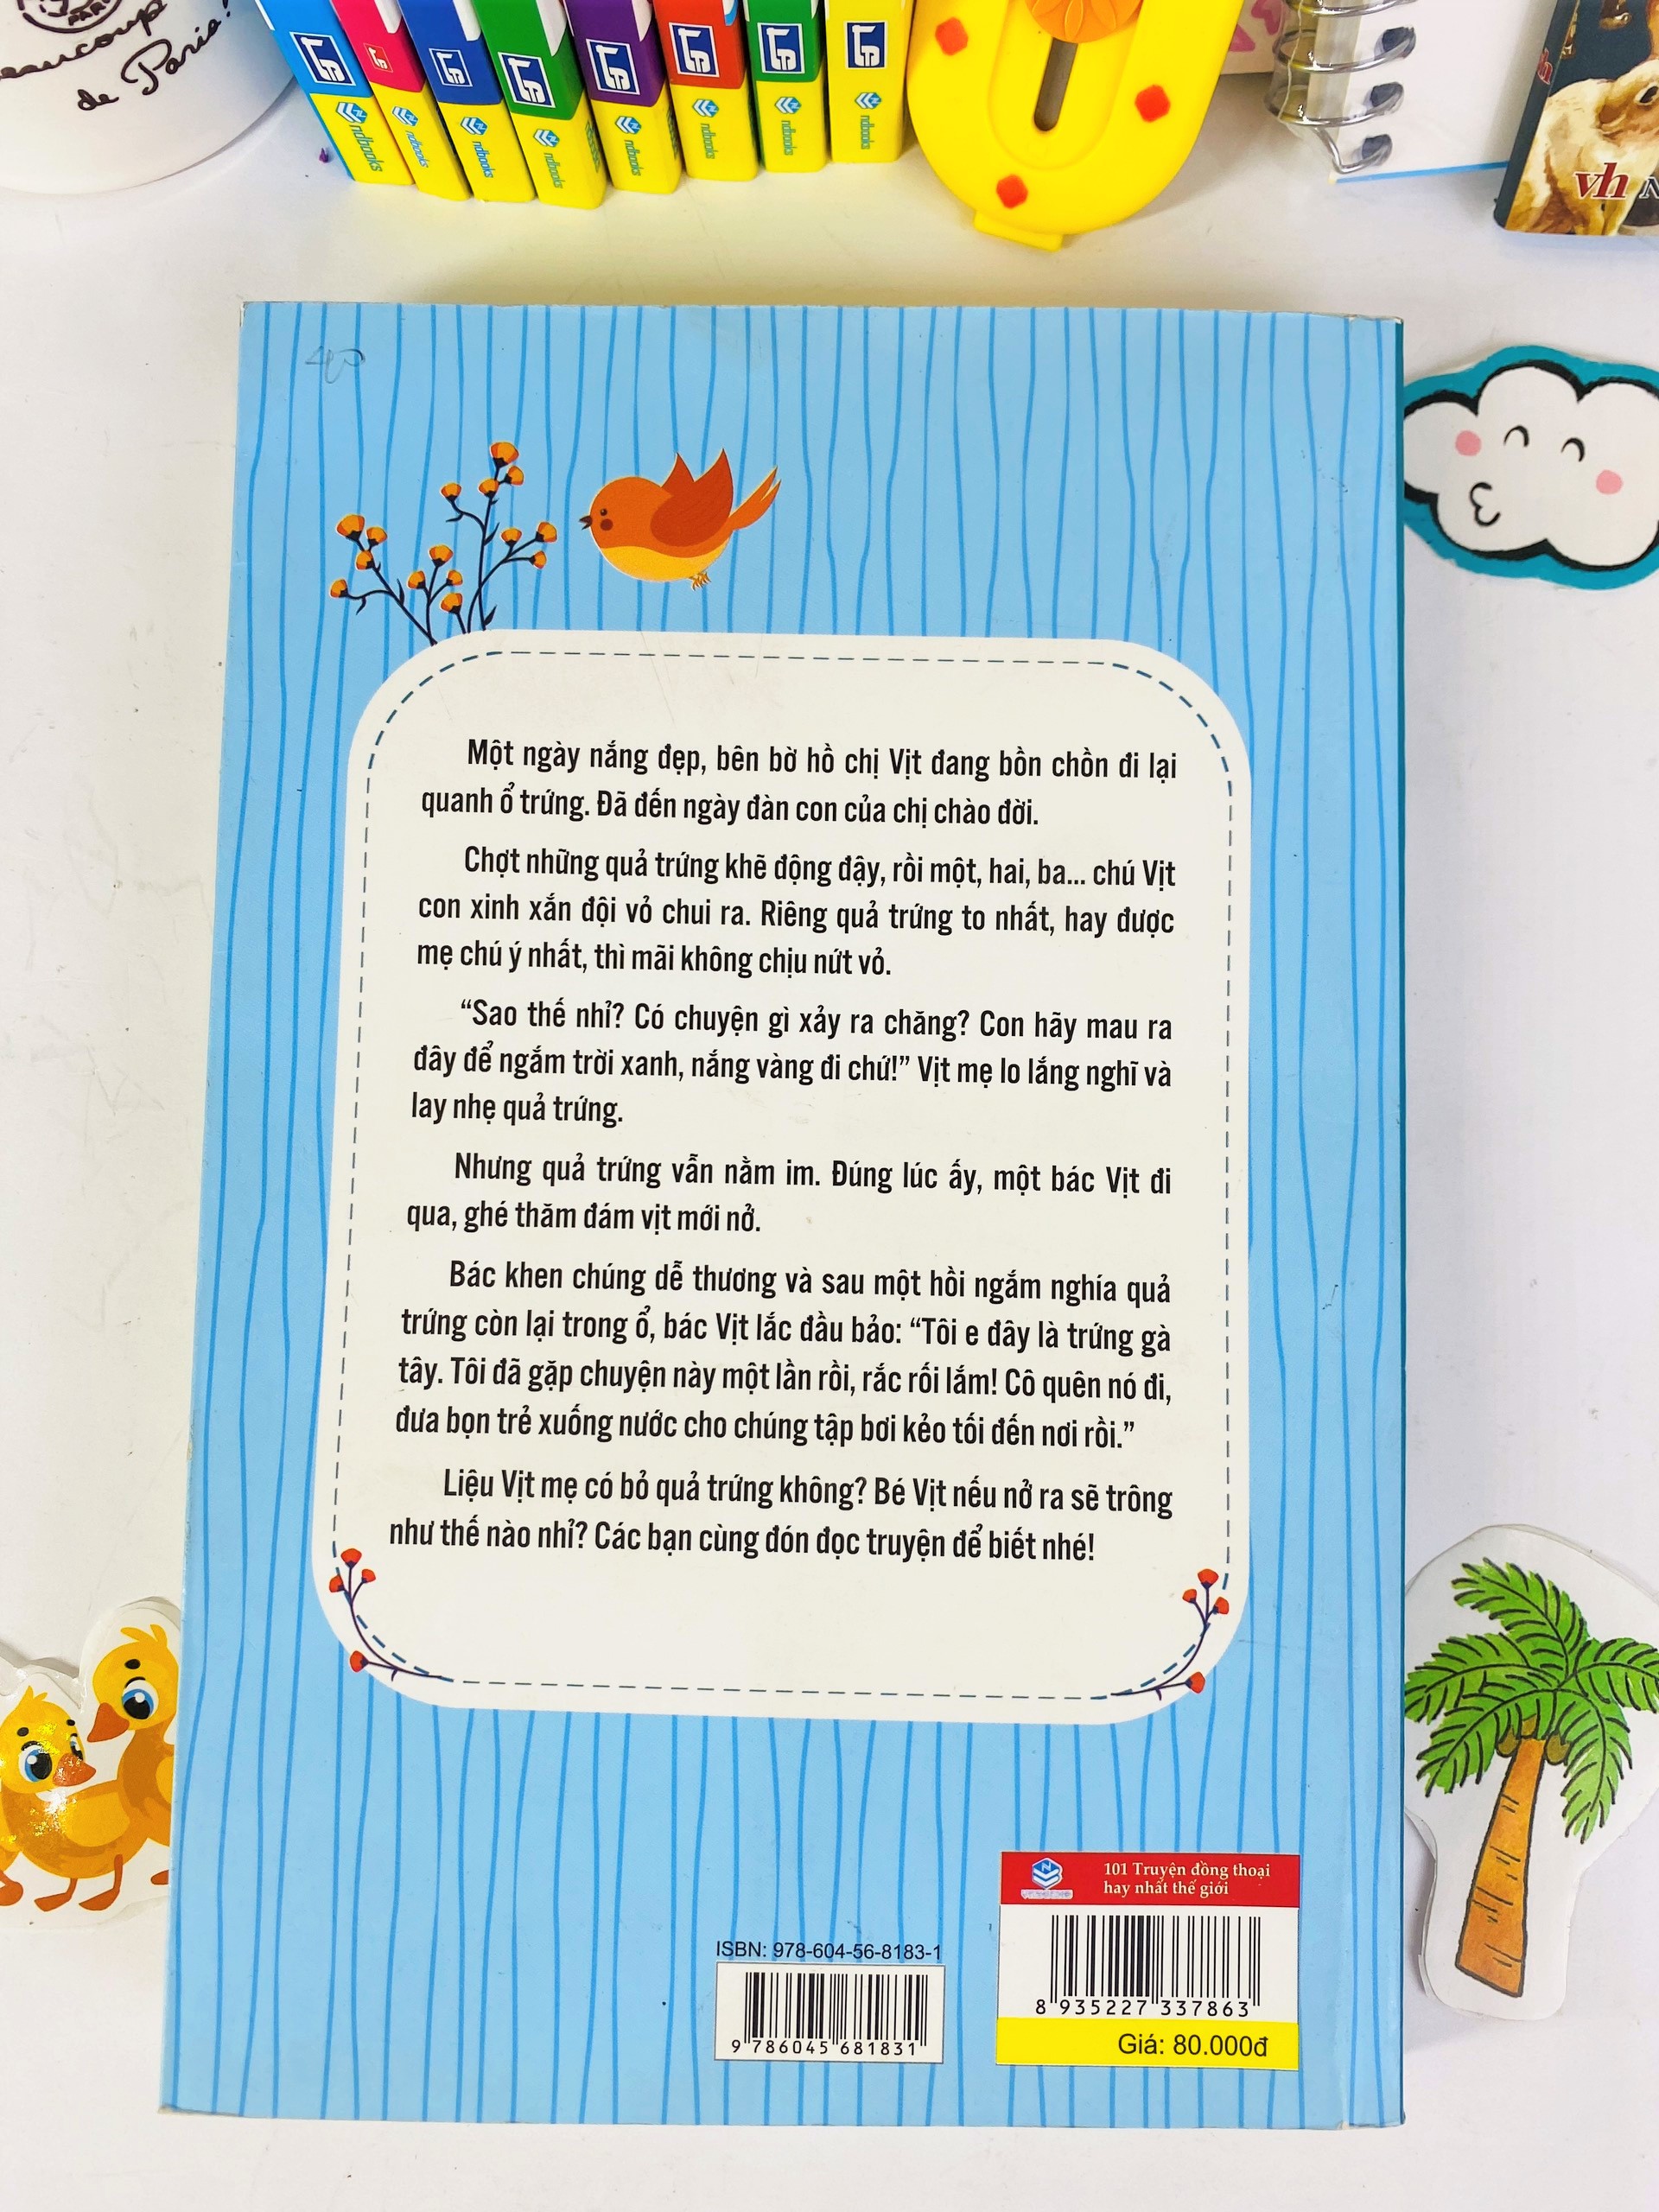 PARIS
beaucoup
de Paris!
ndbooks
ndbooks
ndbooks
ndbooks
ndbooks
ndbooks
ndbooks
ndbooks
vh
Một ngày nắng đẹp, bên bờ hồ chị Vịt đang bồn chồn đi lại
quanh ổ trứng. Đã đến ngày đàn con của chị chào đời.
Chợt những quả trứng khẽ động đậy, rồi một, hai, ba... chú Vịt
con xinh xắn đội vỏ chui ra. Riêng quả trứng to nhất, hay được
mẹ chú ý nhất, thì mãi không chịu nứt vỏ.
“Sao thế nhỉ? Có chuyện gì xảy ra chăng? Con hãy mau ra
đây để ngắm trời xanh, nắng vàng đi chứ!” Vịt mẹ lo lắng nghĩ và
lay nhẹ quả trứng.
Nhưng quả trứng vẫn nằm im. Đúng lúc ấy, một bác Vịt đi
qua, ghé thăm đám vịt mới nở.
Bác khen chúng dễ thương và sau một hồi ngắm nghía quả
trứng còn lại trong ổ, bác Vịt lắc đầu bảo: “Tôi e đây là trứng gà
tây. Tôi đã gặp chuyện này một lần rồi, rắc rối lắm! Cô quên nó đi,
đưa bọn trẻ xuống nước cho chúng tập bơi kẻo tối đến nơi rồi.”
Liệu Vịt mẹ có bỏ quả trứng không? Bé Vịt nếu nở ra sẽ trông
như thế nào nhỉ? Các bạn cùng đón đọc truyện để biết nhé!
101 Truyện đồng thoại
hay nhất thế giới
ISBN: 978-604-56-8183-1
9 786045 681831
8 935227 337863
Giá: 80.000đ